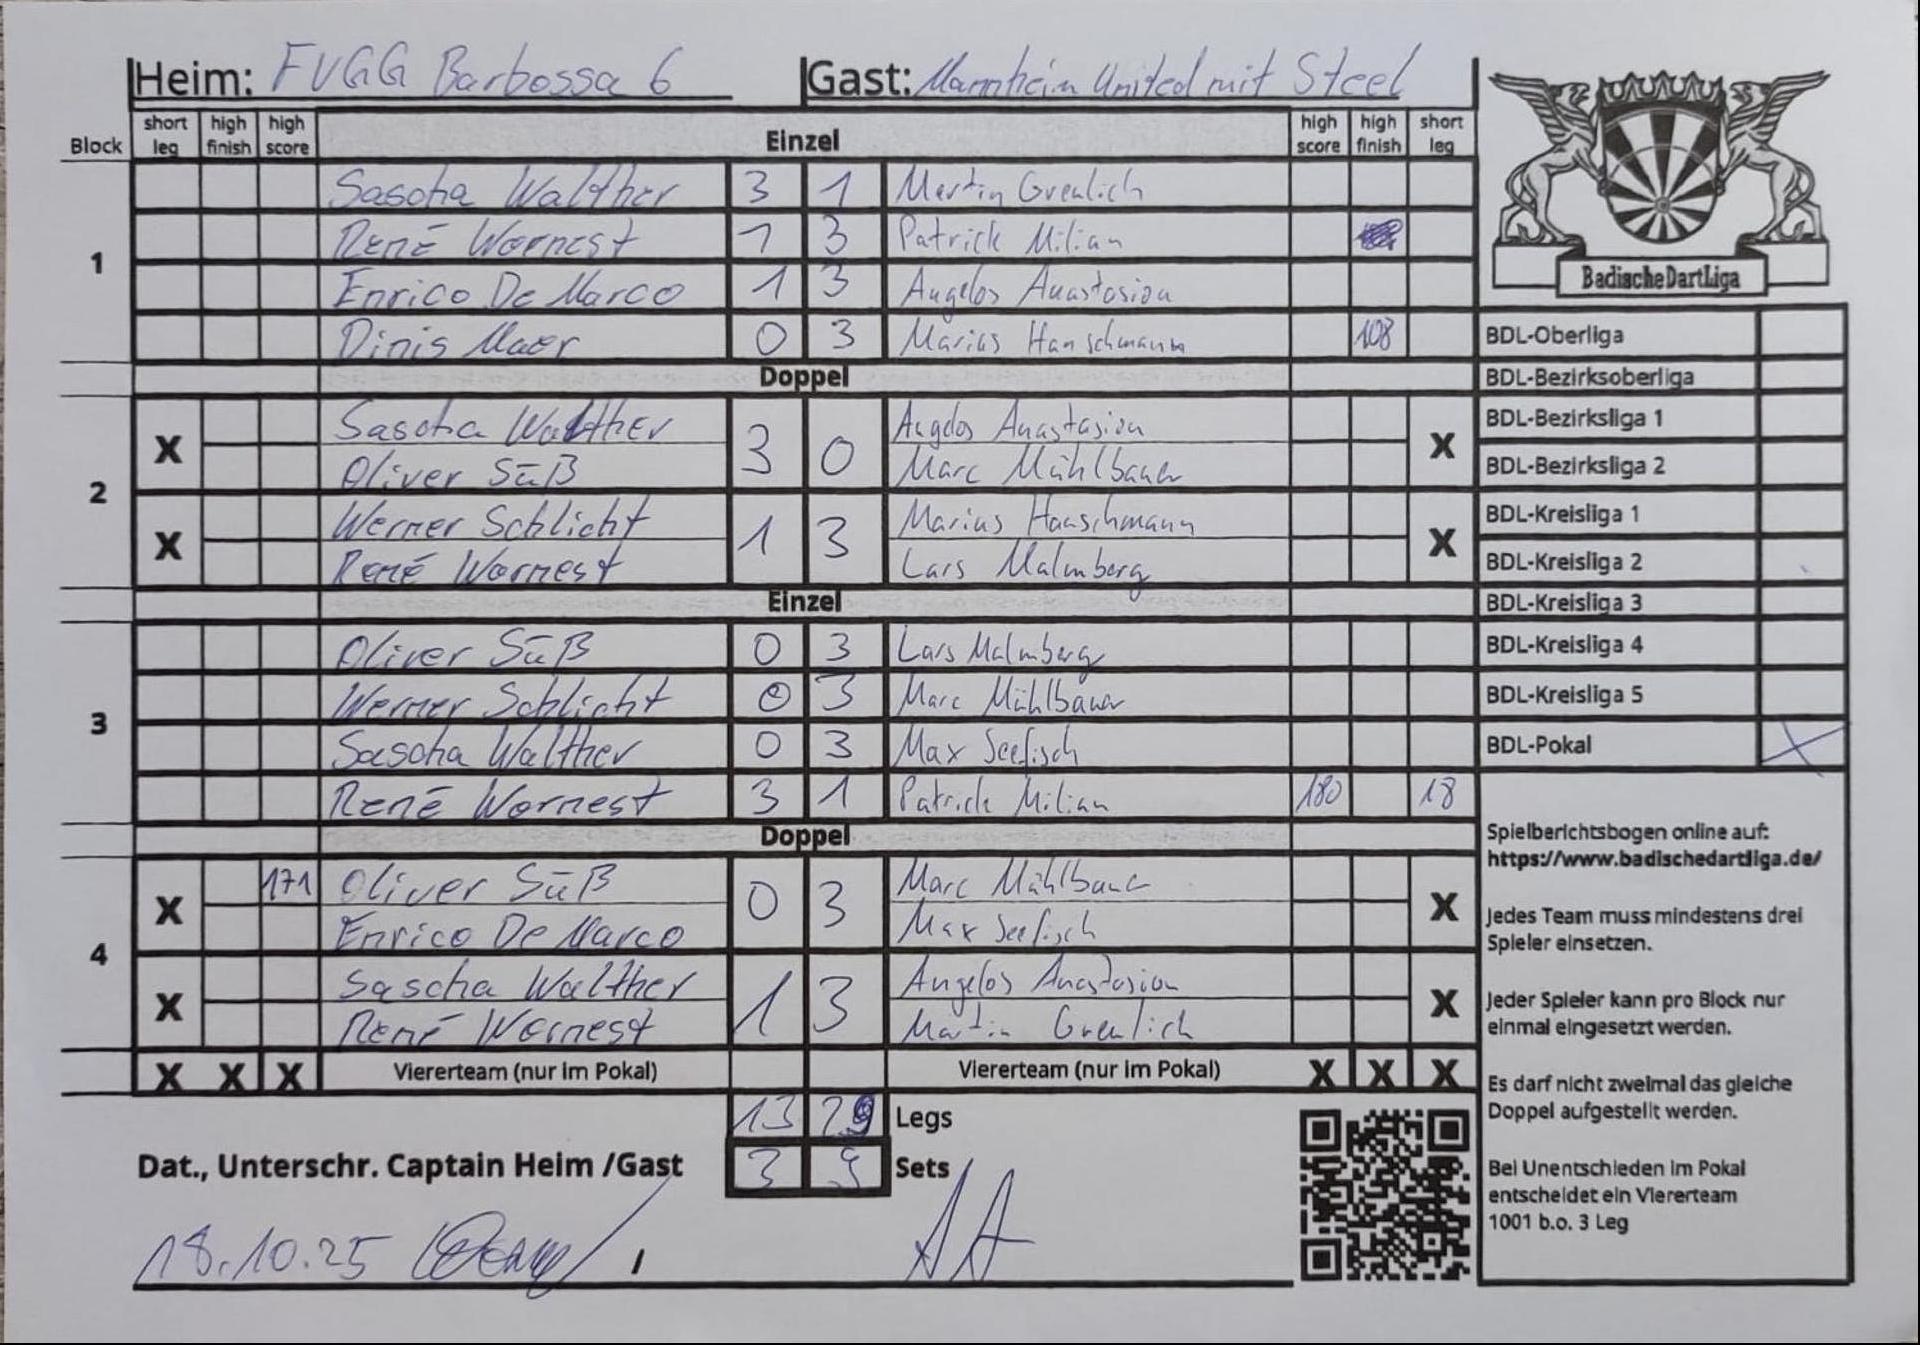 Heim: FVGG Barbossa 6 Gast: Mannheim United mit Steel
Block short leg high finish high score Einzel high score high finish short leg
1
Sascha Walther 3 1 Martin Greulich
René Wornest 1 3 Patrick Milian
Enrico De Marco 1 3 Angelos Anastasiou
Dinis Maer 0 3 Marius Hanschmann 108
Doppel
2
X Sascha Walther 3 0 Angelos Anastasiou X
Oliver Süß Marc Mühlbauer
X Werner Schlicht 1 3 Marius Hanschmann X
René Wornest Lars Malmberg
Einzel
3
Oliver Süß 0 3 Lars Malmberg
Werner Schlicht 0 3 Marc Mühlbauer
Sascha Walther 0 3 Max Seefisch
René Wornest 3 1 Patrick Milian 180 18
Doppel
4
X 171 Oliver Süß 0 3 Marc Mühlbauer X
Enrico De Marco Max Seefisch
X Sascha Walther 1 3 Angelos Anastasiou X
René Wornest Martin Greulich
X X X Viererteam (nur im Pokal) Viererteam (nur im Pokal) X X X
13 29 Legs
Dat., Unterschr. Captain Heim /Gast 3 9 Sets
18.10.25
BadischeDartLiga
BDL-Oberliga
BDL-Bezirksoberliga
BDL-Bezirksliga 1
BDL-Bezirksliga 2
BDL-Kreisliga 1
BDL-Kreisliga 2
BDL-Kreisliga 3
BDL-Kreisliga 4
BDL-Kreisliga 5
BDL-Pokal X
Spielberichtsbogen online auf:
https://www.badischedartliga.de/
Jedes Team muss mindestens drei
Spieler einsetzen.
Jeder Spieler kann pro Block nur
einmal eingesetzt werden.
Es darf nicht zweimal das gleiche
Doppel aufgestellt werden.
Bei Unentschieden im Pokal
entscheidet ein Viererteam
1001 b.o. 3 Leg